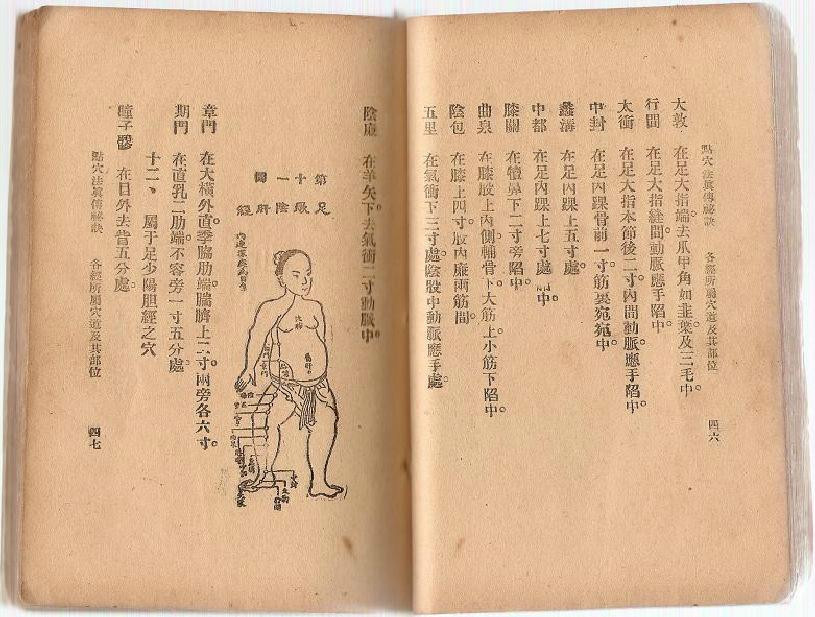 點穴法眞傳祕訣 各經所屬穴道及其部位 四六
大敦 在足大指端。去爪甲角如韭葉及三毛中。
行間 在足大指縫間動脈應手陷中。
太衝 在足大指本節後二寸內間動脈應手陷中。
中封 在足內踝骨前一寸筋裏宛宛中。
蠡溝 在足內踝上五寸處。
中都 在足內踝上七寸處 中。
膝關 在犢鼻下二寸旁陷中。
曲泉 在膝股上內側輔骨下大筋上小筋下陷中。
陰包 在膝上四寸股內廉兩筋間。
五里 在氣衝下三寸處。陰股中動脈應手處。
陰廉 在羊矢下。去氣衝二寸動脈中。
第十一圖
足厥陰肝經
章門 在大橫外直季脇肋端。臍上二寸兩旁各六寸。
期門 在直乳二肋端。不容旁一寸五分處。
十二、屬于足少陽胆經之穴
瞳子髎 在目外去眥五分處。
點穴法眞傳祕訣 各經所屬穴道及其部位 四七